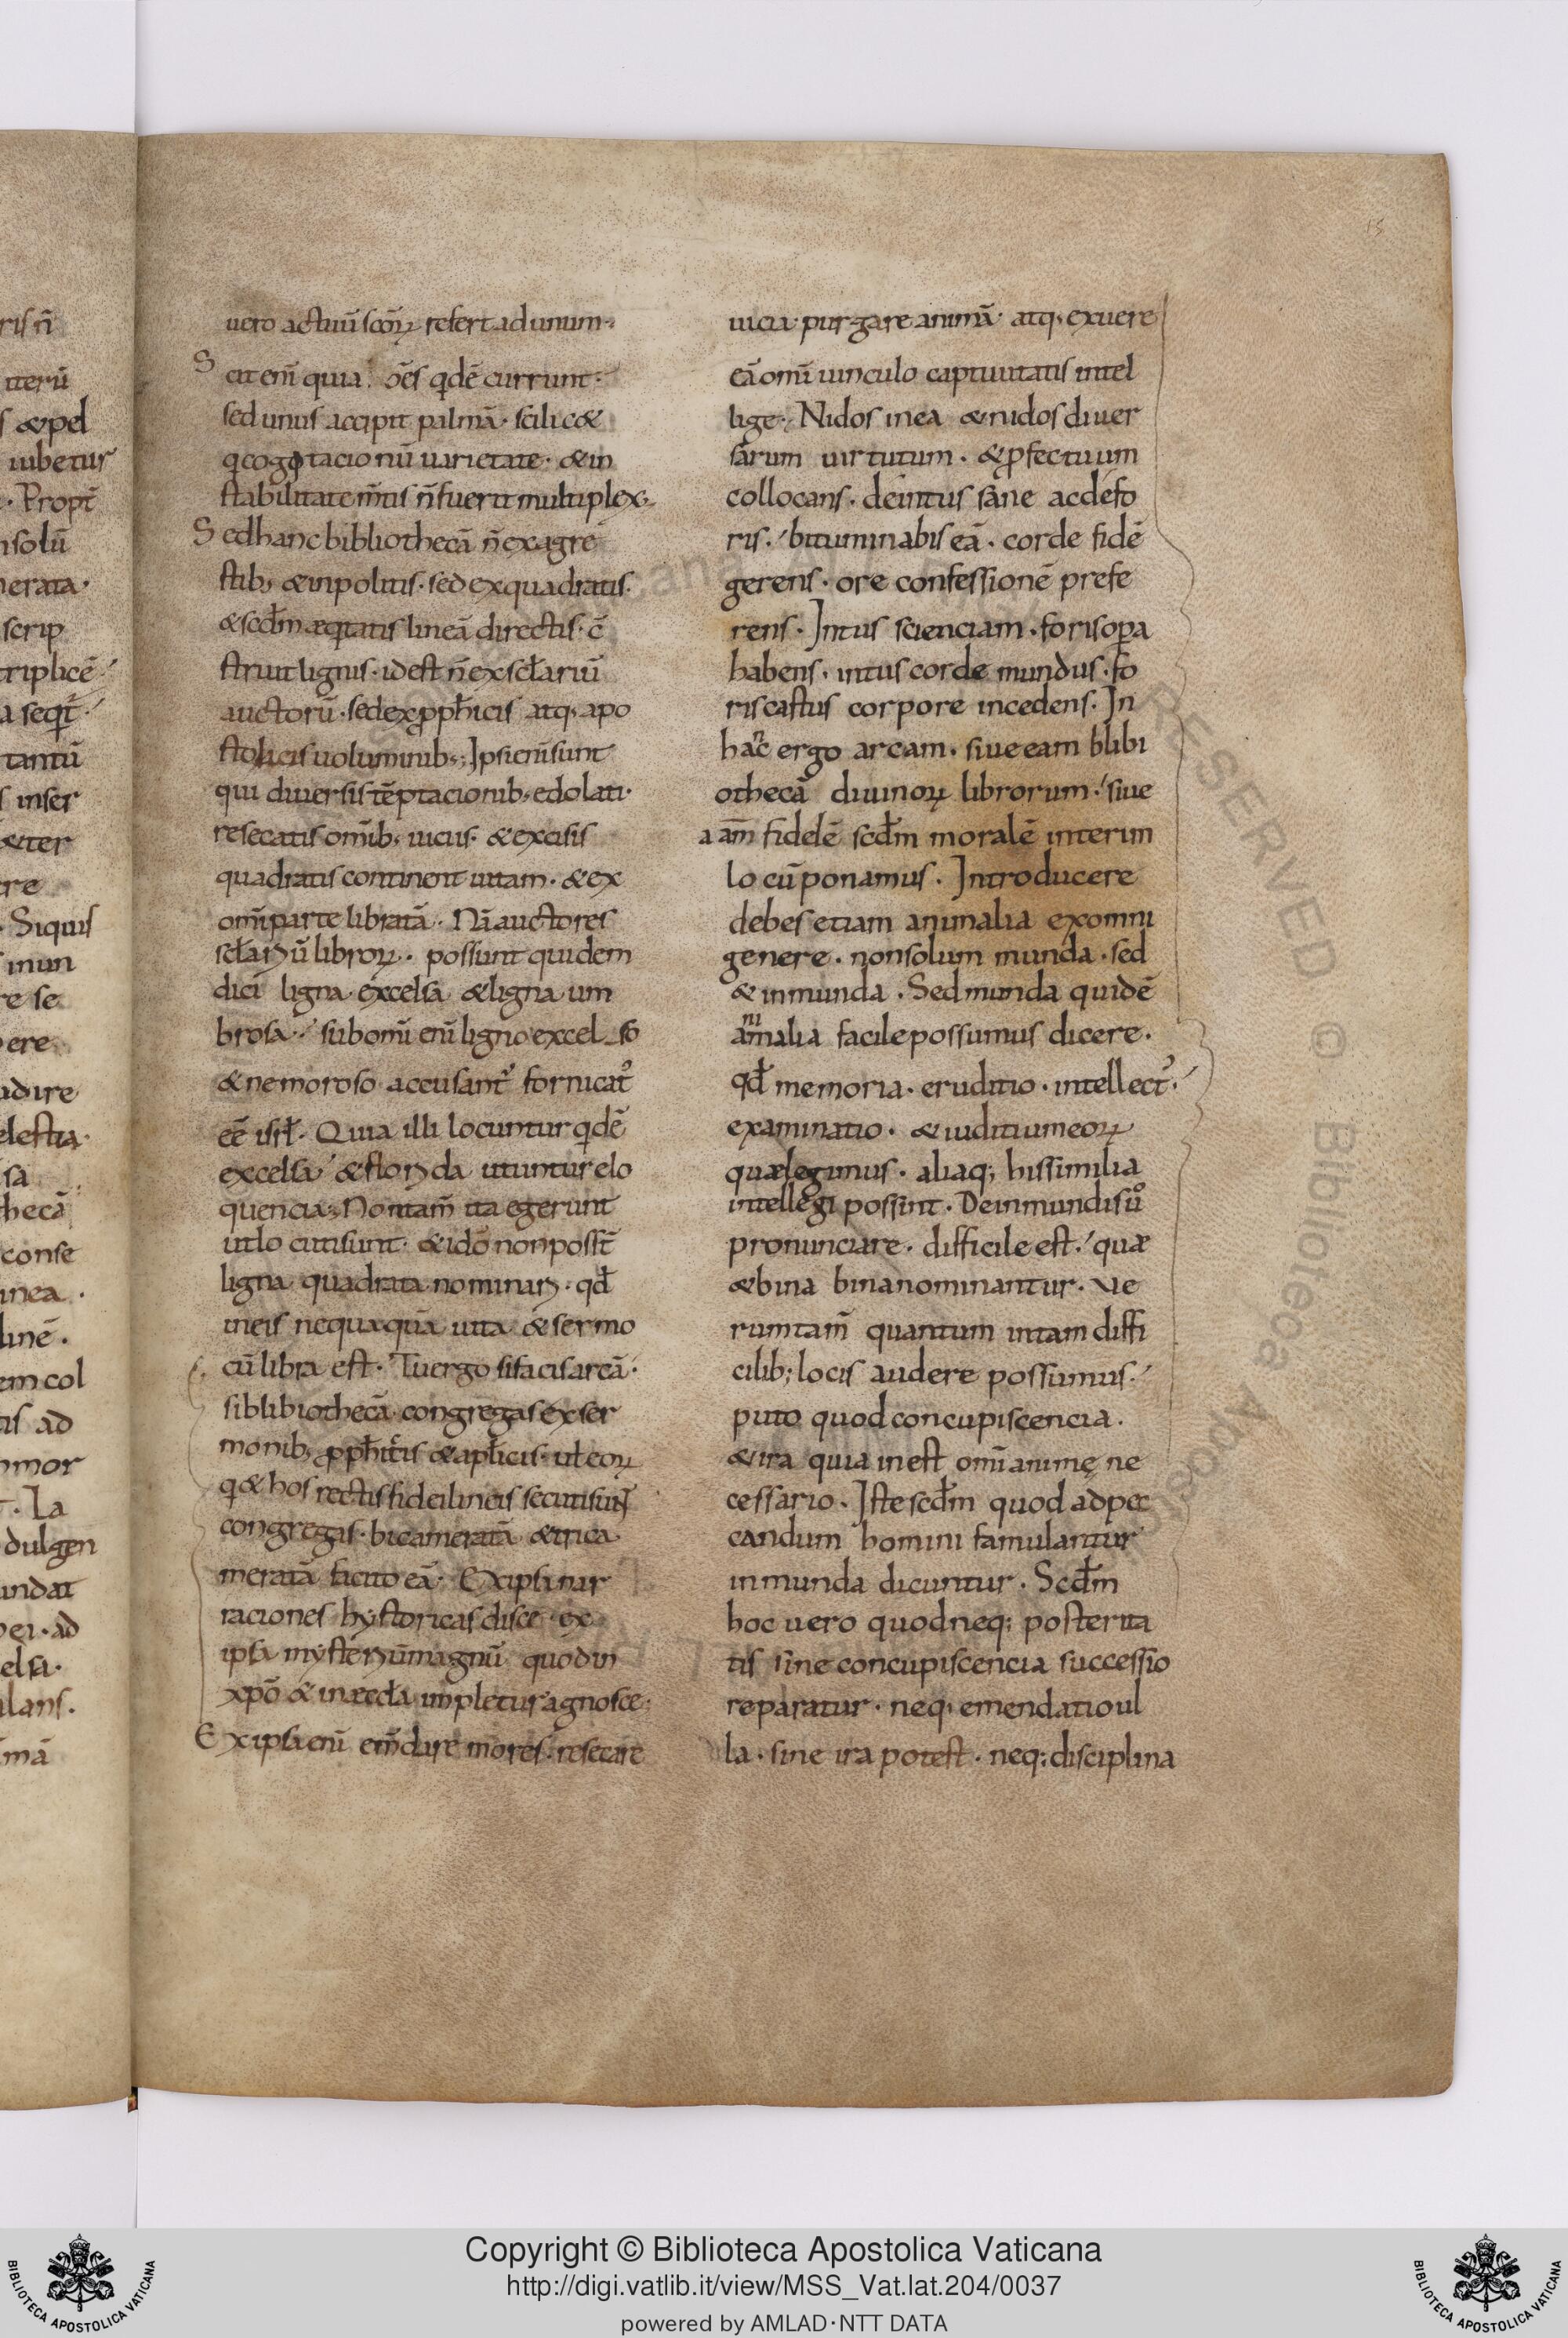 15
uero actuū scōꝝ refert ad unum·
Scit enī quia· oēs qdē currunt·
sed unus accipit palmā· scilicet
q cogitacionū uarietate· & in
stabilitate m̄tis n̄ fuerit multiplex·
Sed hanc bibliothecā n̄ ex agre
stib; & inpolitis· sed ex quadratis·
& scdm̄ æqitatis lineā directis· c̄
struit lignis· id est n̄ ex scl̄ariū
auctorū· sed ex ꝓph̄icis atq; apo
stolicis uoluminib;· Ipsi enī sunt
qui diuersis tēptacionib; edolati·
resecatis omīb; uiciis· & excisis
quadratis continent uitam· & ex
omī parte libratā· Nā auctores
scl̄ariū libroꝝ· possunt quidem
dici ligna excelsa & ligna um
brosa· sub omī enī ligno excelso
& nemoroso accusant᷒ fornicat᷒
eē isrl̄· Quia illi locuntur qdē
excelsa & florida utuntur elo
quencia· Non tam̄ ita egerunt
ut locuti sunt· & idō non poss̄t
ligna quadrata nominari· qd̄
in eis nequaquā uita & sermo
cū libra est· Tu ergo si facis arcā·
si blibiothecā congregas ex ser
monib; ꝓph̄itis & apl̄icis· ut eoꝝ
q & hos rectis fidei lineis secuti sunt
congregas· bicameratā & trica
meratā facito eā· Ex ipsi nar
raciones hystoricas disce ex
ipsa mysteriū magnū quod in
xpō & in æccl̄a impletur agnosce·
Ex ipsa enī em̄dare mores· resecare
uicia· purgare animā· atq; exuere
eā omī uinculo captiuitatis intel
lige· Nidos in ea & nidos diuer
sarum uirtutum· & ꝓfectuum
collocans· deintus sane ac defo
ris· bituminabis eā· corde fidē
gerens· ore confessionē prefe
rens· Intus scienciam· foris oꝑa
habens· intus corde mundus· fo
ris castus corpore incedens· In
hanc ergo arcam· siue eam blibi
othecā diuinoꝝ librorum· siue
a am̄ fidelē scdm̄ moralē interim
locū ponamus· Introducere
debes etiam animalia ex omni
genere· non solum munda· sed
& inmunda· Sed munda quidē
animalia facile possumus dicere·
qd̄ memoria· eruditio· intellect᷒·
examinatio· & iuditium eoꝝ
quæ legimus· aliaq; hissimilia
intellegi possint· De inmundis uº
pronunciare· difficile est· quæ
& bina bina nominantur· Ve
rum tam̄ quantum in tam diffi
cilib; locis audere possumus·
puto quod concupiscencia·
& ira quia inest omī animę ne
cessario· Iste scdm̄ quod ad pec
candum homini famulantur
inmunda dicuntur· Scdm̄
hoc uero quod neq; posterita
tis sine concupiscencia successio
reparatur· neq; emendatio ul
la· sine ira potest· neq; disciplina
Copyright © Biblioteca Apostolica Vaticana
http://digi.vatlib.it/view/MSS_Vat.lat.204/0037
powered by AMLAD·NTT DATA
BIBLIOTECA APOSTOLICA VATICANA
BIBLIOTECA APOSTOLICA VATICANA